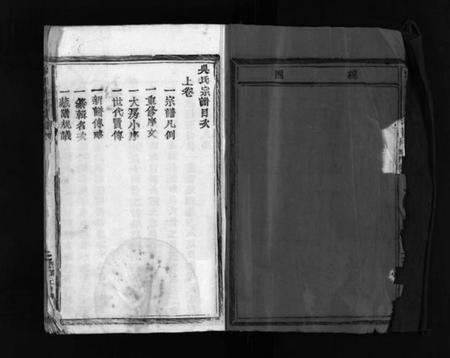 吳氏宗譜目次
上卷
一宗譜凡例
一重修序文
一大房小序
一世代賢傳
一初譜傳畧
一纂輯名次
一藏譜規議